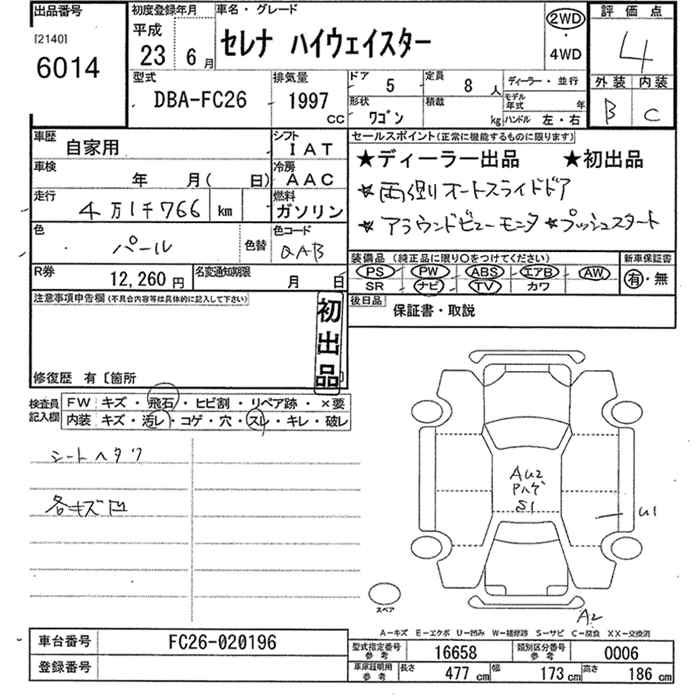 出品番号
[2140]
6014
初度登録年月
平成
23年 6月
車名・グレード
セレナ ハイウェイスター
2WD
・
4WD
評価点
4
外装 内装
B C
型式
DBA-FC26
排気量
1997 CC
ドア 5
定員 8人
形状 ワゴン
積載 kg
ディーラー・並行
モデル年式 年
ハンドル 左・右
車歴 自家用
シフト IAT
車検 年 月( 日)
冷房 AAC
走行 4万1千766 km
燃料 ガソリン
色 パール
色替
色コード QAB
R券 12,260円
名変通知期限 月 日
セールスポイント(正常に機能するものに限ります)
★ディーラー出品 ★初出品
★両側オートスライドドア
★アラウンドビューモニタ ★プッシュスタート
装備品 (純正品に限り○をつけてください)
PS PW ABS エアB AW
SR ナビ TV カワ
新車保証書
有・無
後日品 保証書・取説
注意事項申告欄(不具合内容等は具体的に記入して下さい)
初出品
修復歴 有〔箇所 〕
検査員記入欄
FW キズ・飛石・ヒビ割・リペア跡・×要
内装 キズ・汚レ・コゲ・穴・スレ・キレ・破レ
シートヘタリ
各キズ凹
AU2
Pハゲ
S1
U1
A2
スペア
A―キズ E―エクボ U―凹み W―補修跡 S―サビ C―腐食 XX―交換済
車台番号 FC26-020196
登録番号
型式指定番号 参考 16658
類別区分番号 参考 0006
車庫証明用 参考 長さ 477cm 幅 173cm 高さ 186cm